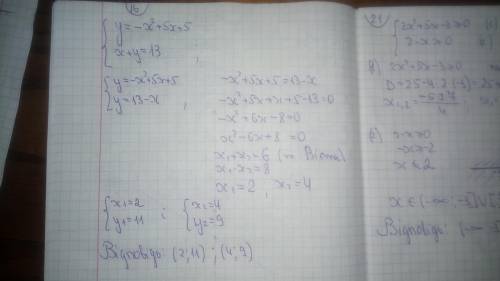 16
{ y=-x²+5x+5
x+y=13 ;
{ y=-x²+5x+5
y=13-x ,
-x²+5x+5=13-x
-x²+5x+x+5-13=0
-x²+6x-8=0
x²-6x+8=0
x₁+x₂=6 (т. Вієта)
x₁·x₂=8
x₁=2 , x₂=4
{ x₁=2
y₁=11 ;
{ x₂=4
y₂=9
Відповідь: (2;11) ; (4;9)
21
{ 2x²+5x-3≥0 (1)
2-x≥0
2x²+5x-3≥0
D=25-4·2·(-3)=25+
x₁,₂=
2-x≥0
-x≥-2
x≤2
x∈(-∞;-3]∪[
Відповідь: (-∞